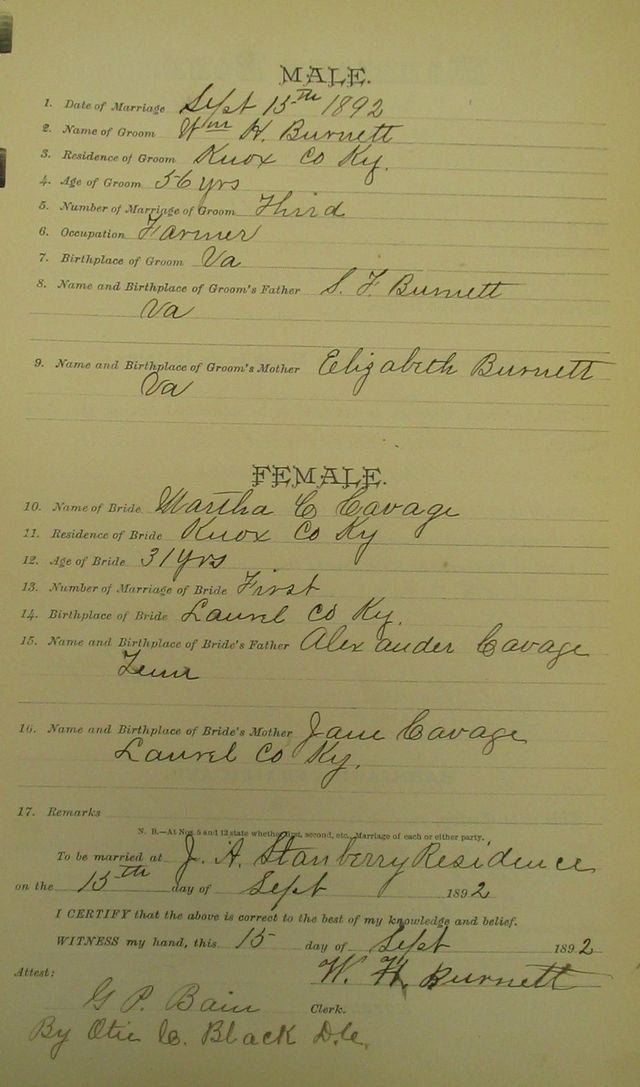 MALE.
1. Date of Marriage Sept 15th 1892
2. Name of Groom Wm H. Burnett
3. Residence of Groom Knox Co Ky.
4. Age of Groom 56 yrs
5. Number of Marriage of Groom Third
6. Occupation Farmer
7. Birthplace of Groom Va
8. Name and Birthplace of Groom's Father S. F. Burnett
Va
9. Name and Birthplace of Groom's Mother Elizabeth Burnett
Va
FEMALE.
10. Name of Bride Martha C Cavage
11. Residence of Bride Knox Co Ky
12. Age of Bride 31 yrs
13. Number of Marriage of Bride First
14. Birthplace of Bride Laurel Co Ky.
15. Name and Birthplace of Bride's Father Alexander Cavage
Tenn
16. Name and Birthplace of Bride's Mother Jane Cavage
Laurel Co Ky.
17. Remarks
N. B.—At Nos. 5 and 12 state whether first, second, etc., Marriage of each or either party.
To be married at J. A. Stanberry Residence
on the 15th day of Sept 1892
I CERTIFY that the above is correct to the best of my knowledge and belief.
WITNESS my hand, this 15 day of Sept 1892
W. H. Burnett
Attest:
G P. Bain Clerk.
By Otie C. Black D.C.